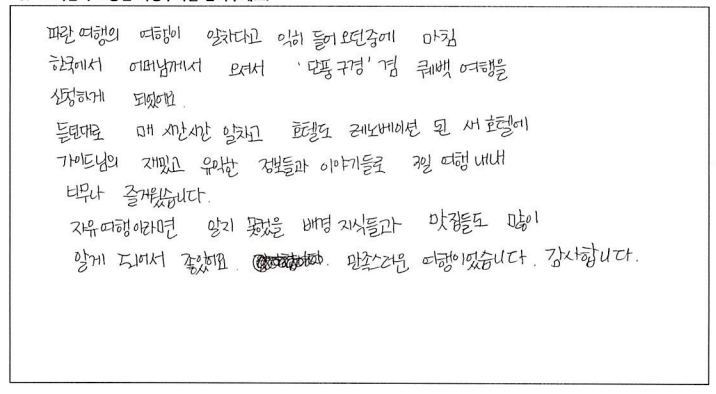 파란여행의 여행이 알차다고 익히 들어오던중에 마침
한국에서 어머님께서 오셔서 '단풍구경' 겸 퀘백 여행을
신청하게 되었어요.
듣던대로 매 시간시간 알차고 호텔도 레노베이션 된 새 호텔에
가이드님의 재밌고 유익한 정보들과 이야기들로 3일 여행 내내
너무나 즐거웠습니다.
자유여행이라면 알지 못했을 배경 지식들과 맛집들도 많이
알게 되어서 좋았어요. 만족스러운 여행이었습니다. 감사합니다.